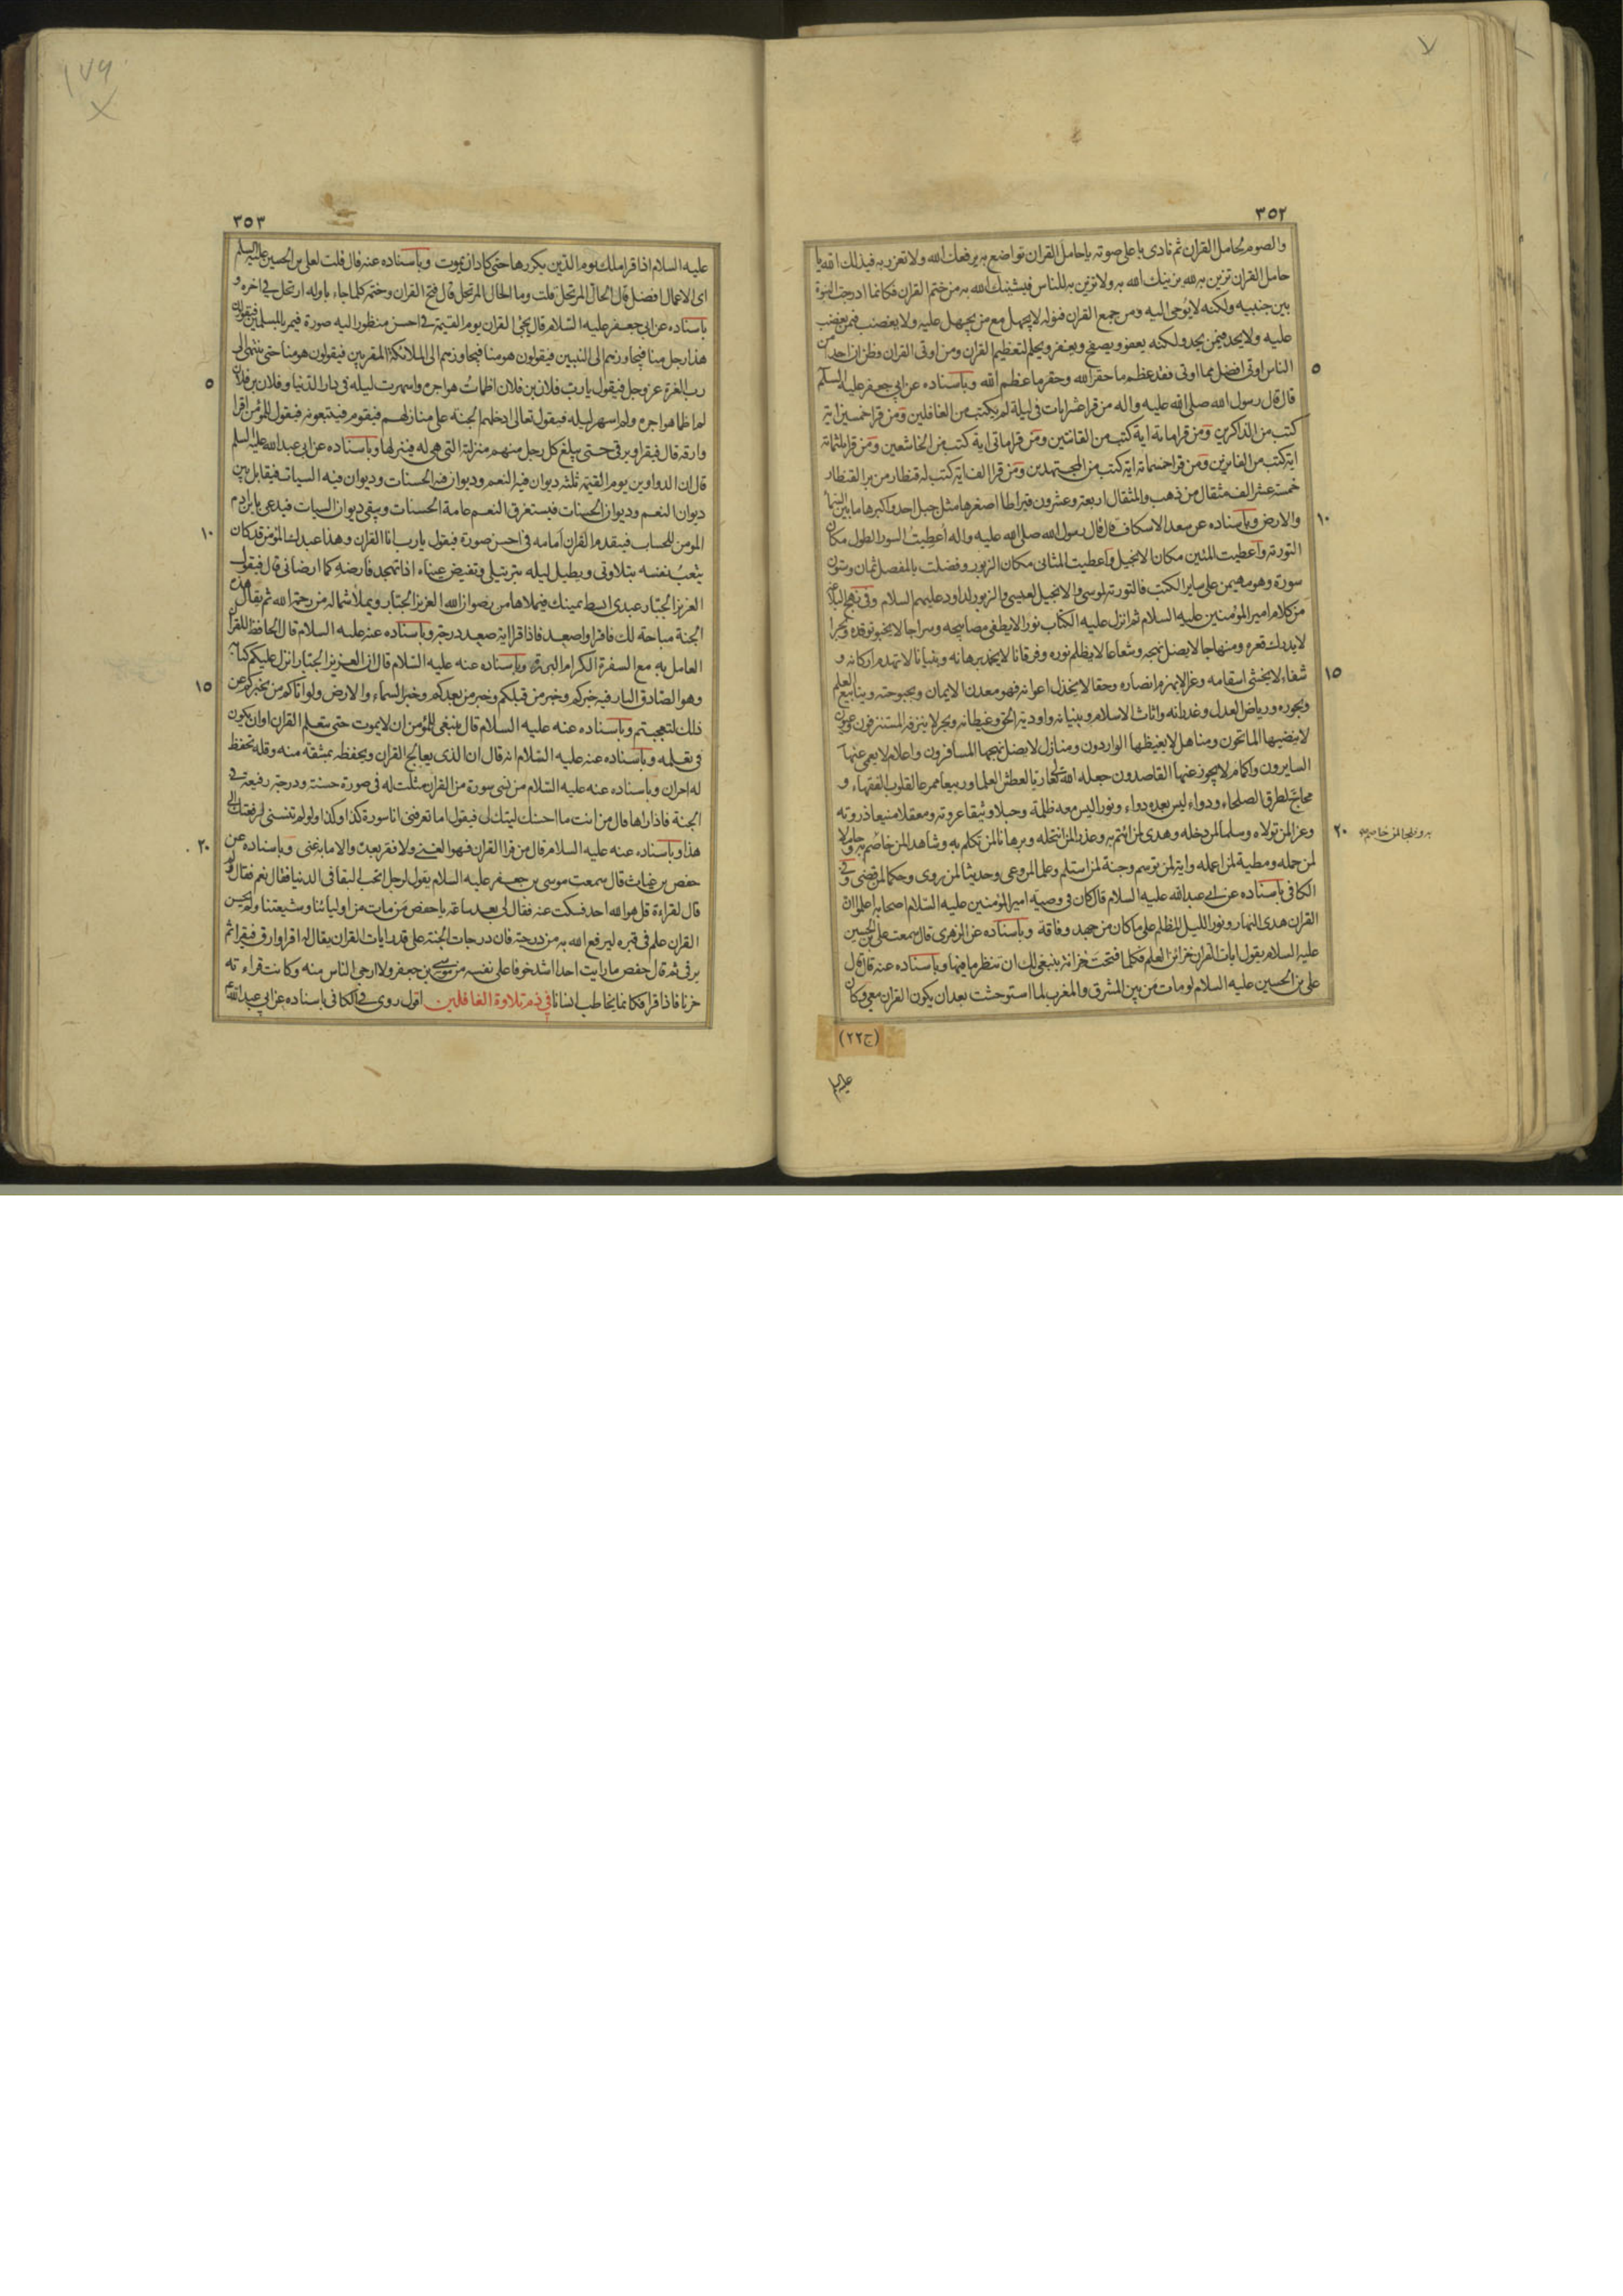 ٣٥٢
والصوم لحامل القران ثم نادى باعلى صوته يا حامل القران تواضع به يرفعك الله ولا تعزز به فيذلك الله يا
حامل القران تزين به لله يزينك الله به ولا تزين به للناس فيشينك الله به من ختم القران فكانما ادرجت النبوة
بين جنبيه ولكنه لا يوحى اليه ومن جمع القران فنوله لا يجهل مع من يجهل عليه ولا يغضب فيمن يغضب
عليه ولا يحد فيمن يحد ولكنه يعفو ويصفح ويغفر ويحلم لتعظيم القران ومن اوتى القران وظن ان احدا من
الناس اوتى افضل مما اوتى فقد عظم ما حقر الله وحقر ما عظم الله وباسناده عن ابى جعفر عليه السلم
٥
قال قال رسول الله صلى الله عليه واله من قرا عشر ايات فى ليلة لم يكتب من الغافلين ومن قرا خمسين اية
كتب من الذاكرين ومن قرا مائة اية كتب من القانتين ومن قرا ماتى اية كتب من الخاشعين ومن قرا ثلثمائة
اية كتب من الفايزين ومن قرا خمسمائة اية كتب من المجتهدين ومن قرا الف اية كتب له قنطار من بر القنطار
خمسة عشر الف مثقال من ذهب والمثقال اربعة وعشرون قيراطا اصغرها مثل جبل احد واكبرها ما بين السماء
والارض وباسناده عن سعد الاسكاف قال قال رسول الله صلى الله عليه واله اعطيت السور الطول مكان
١٠
التورته واعطيت المئين مكان الانجيل واعطيت المثانى مكان الزبور وفضلت بالمفصل ثمان وستون
سورة وهو مهيمن على ساير الكتب فالتورته لموسى والانجيل لعيسى والزبور لداود عليهم السلام وفى نهج البلاغة
من كلام امير المؤمنين عليه السلام ثم انزل عليه الكتاب نورا لا يطفى مصابيحه وسراجا لا يخبو توقده وبحرا
لا يدرك قعره ومنهاجا لا يضل نهجه وشعاعا لا يظلم نوره وفرقانا لا يخمد برهانه وبنيانا لا تهدم اركانه و
شفاء لا يخشى اسقامه وعزا لا يهزم انصاره وحقا لا يخذل اعوانه فهو معدن الايمان وبحبوحته وينابيع العلم
١٥
وبحوره ورياض العدل وغدرانه واثاث الاسلام وبنيانه واودية الحق وغيطانه وبحر لا ينزفه المستنزفون وعيون
لا ينضبها الماتحون ومناهل لا يغيظها الواردون ومنازل لا يضل نهجها المسافرون واعلام لا يعمى عنها
السايرون واكام لا يجوز عنها القاصدون جعله الله تعالى ريا لعطش العلماء وربيعا ممرعا لقلوب الفقهاء و
محاج لطرق الصلحاء ودواء ليس بعده دواء ونورا ليس معه ظلمة وحبلا وثيقا عروته ومعقلا منيعا ذروته
وعزا لمن تولاه وسلما لمن دخله وهدى لمن ائتم به وعذرا لمن انتحله وبرهانا لمن تكلم به وشاهدا لمن خاصم به وحاملا
٢٠
به وفلجا لمن حاج به
لمن حمله ومطية لمن اعمله واية لمن توسم وجنة لمن استلم وعلما لمن وعى وحديثا لمن روى وحكما لمن قضى وفى
الكافى باسناده عن ابى عبد الله عليه السلام قال كان فى وصية امير المؤمنين عليه السلام اصحابه اعلموا ان
القران هدى النهار ونور الليل المظلم على ما كان من جهد وفاقة وباسناده عن الزهرى قال سمعت على بن الحسين
عليه السلام يقول ايات القران خزائن العلم فكلما فتحت خزانة ينبغى لك ان تنظر ما فيها وباسناده عنه قال قال
على بن الحسين عليه السلام لو مات من بين المشرق والمغرب لما استوحشت بعد ان يكون القران معى وكان
(ج٢٢)
عليه
٣٥٣
عليه السلام اذا قرا ملك يوم الدين يكررها حتى كاد ان يموت وباسناده عنه قال قلت لعلى بن الحسين عليه السلم
اى الاعمال افضل قال الحال المرتحل قلت وما الحال المرتحل قال فتح القران وختمه كلما جاء باوله ارتحل فى اخره و
باسناده عن ابى جعفر عليه السلام قال يجئ القران يوم القيمة فى احسن منظور اليه صورة فيمر بالمسلمين فيقولون
هذا رجل منا فيجاوزهم الى النبيين فيقولون هو منا فيجاوزهم الى الملائكة المقربين فيقولون هو منا حتى ينتهى الى
رب العزة عز وجل فيقول يا رب فلان بن فلان اظمأت هواجره واسهرت ليله فى دار الدنيا وفلان بن فلان
٥
لم اظمأ هواجره ولم اسهر ليله فيقول تعالى ادخلهم الجنة على منازلهم فيقوم فيتبعونه فيقول للمؤمن اقرا
وارقه قال فيقرا ويرقى حتى يبلغ كل رجل منهم منزلة التى هى له فينزلها وباسناده عن ابى عبد الله عليه السلم
قال ان الدواوين يوم القيمة ثلثة ديوان فيه النعم وديوان فيه الحسنات وديوان فيه السيات فيقابل بين
ديوان النعم وديوان الحسنات فيستغرق النعم عامة الحسنات ويبقى ديوان السيات فيدعى بابن ادم
المومن للحساب فيتقدم القران امامه فى احسن صورة فيقول يا رب انا القران وهذا عبدك المؤمن قد كان
١٠
يتعب نفسه بتلاوتى ويطيل ليله بترتيلى وتفيض عيناه اذا تهجد فارضه كما ارضانى قال فيقول
العزيز الجبار عبدى ابسط يمينك فيملاها من رضوان الله العزيز الجبار ويملأ شماله من رحمة الله ثم يقال هذه
الجنة مباحة لك فاقرا واصعد فاذا قرا اية صعد درجة وباسناده عنه عليه السلام قال الحافظ للقران
العامل به مع السفرة الكرام البررة وباسناده عنه عليه السلام قال ان العزيز الجبار انزل عليكم كتابه
وهو الصادق البار فيه خبركم وخبر من قبلكم وخبر من بعدكم وخبر السماء والارض ولو اتاكم من يخبركم عن
١٥
ذلك لتعجبتم وباسناده عنه عليه السلام قال ينبغى للمؤمن ان لا يموت حتى يتعلم القران او ان يكون
فى تعلمه وباسناده عنه عليه السلام انه قال ان الذى يعالج القران ويحفظه بمشقة منه وقلة تحفظ
له اجران وباسناده عنه عليه السلام من نسى سورة من القران مثلت له فى صورة حسنة ودرجة رفيعة فى
الجنة فاذا راها قال من انت ما احسنك ليتك لى فيقول اما تعرفنى انا سورة كذا وكذا ولو لم تنسنى لرفعتك الى
هذا وباسناده عنه عليه السلام قال من قرا القران فهو الغنى ولا فقر بعده والا ما به غنى وباسناده عن
٢٠
حفص بن غياث قال سمعت موسى بن جعفر عليه السلام يقول لرجل اتحب البقا فى الدنيا فقال نعم فقال ولم
قال لقراءة قل هو الله احد فسكت عنه فقال لى بعد ساعة يا حفص من مات من اوليائنا وشيعتنا ولم يحسن
القران علم فى قبره ليرفع الله به من درجته فان درجات الجنة على قدر ايات القران يقال له اقرا وارق فيقرا ثم
يرقى ثم قال حفص ما رايت احدا اشد خوفا على نفسه من موسى بن جعفر ولا ارجى الناس منه وكانت قراءته
حزنا فاذا قرا فكانما يخاطب انسانا فى ذم تلاوة الغافلين اقول روى فى الكافى باسناده عن ابى عبد الله
١٧٩